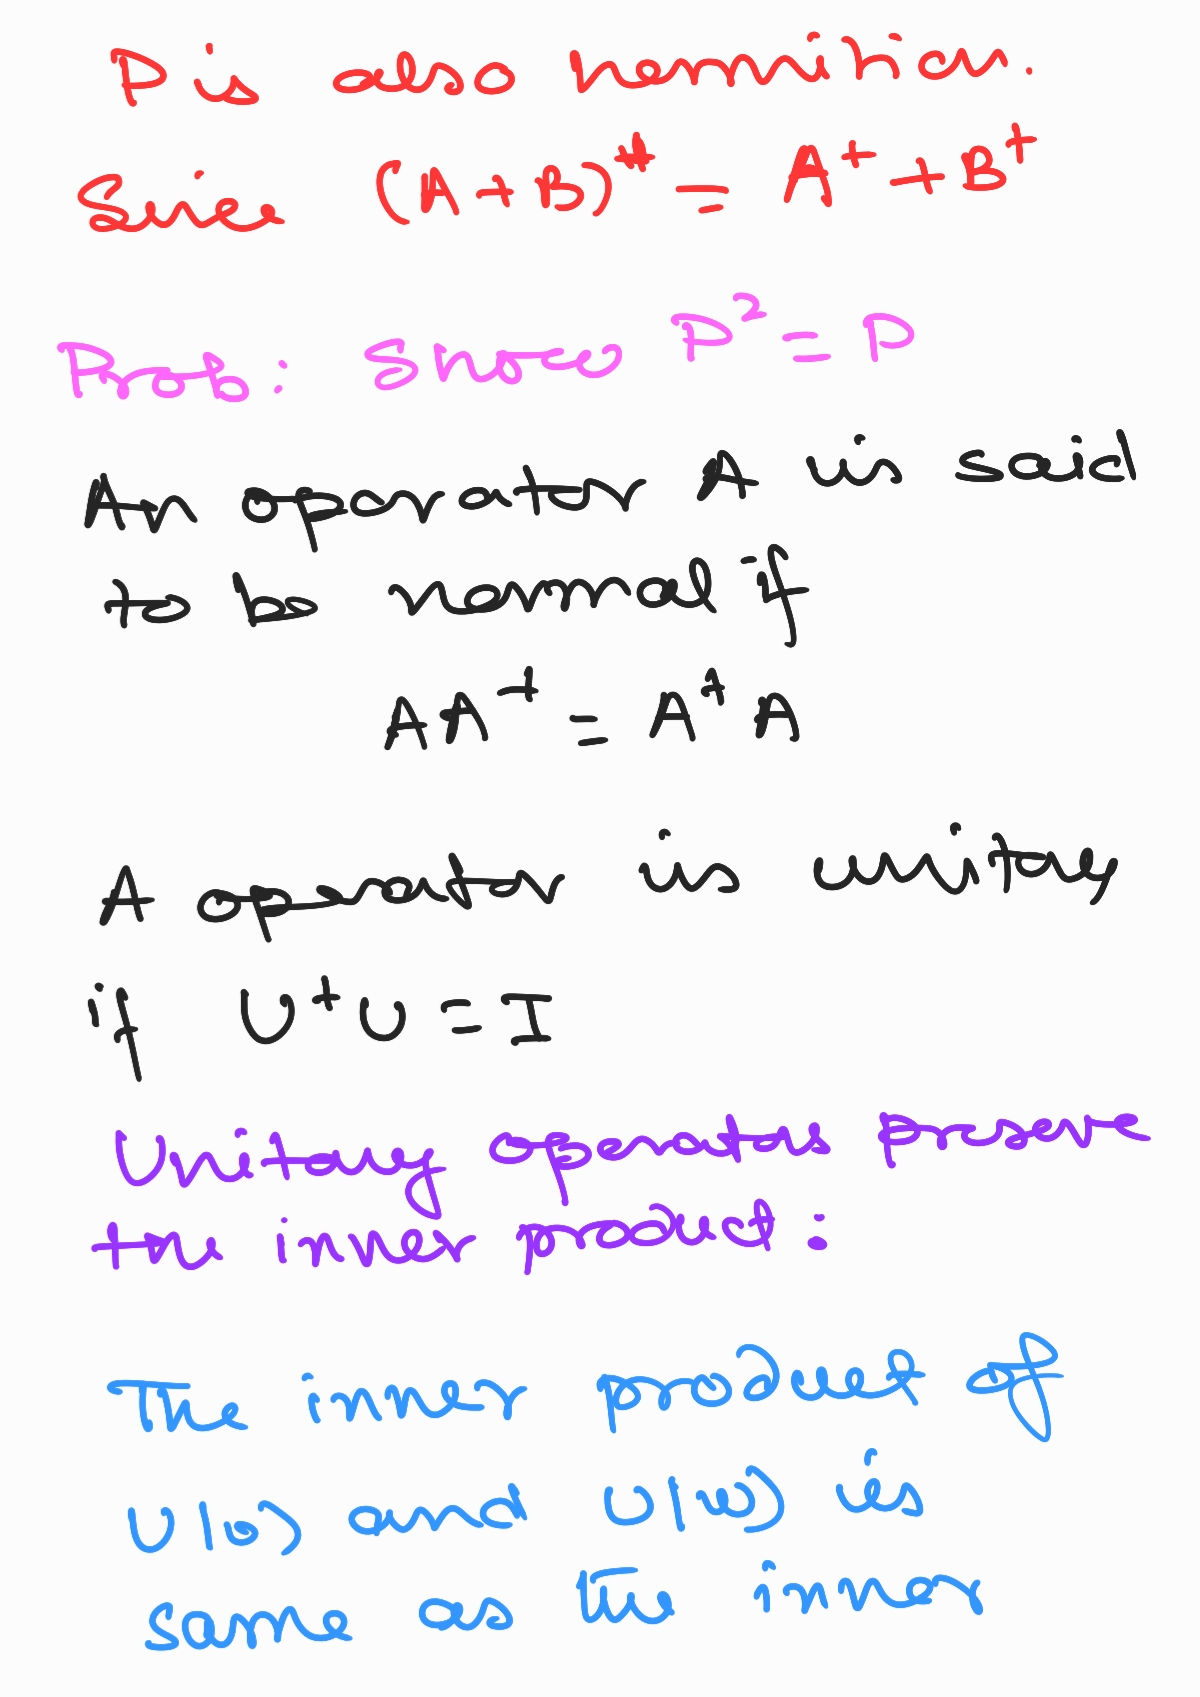 P is also hermitian.
Since (A + B)⁺ = A⁺ + B⁺
Prob: Show P² = P
An operator A is said
to be normal if
AA⁺ = A⁺A
A operator is unitary
if U⁺U = I
Unitary operators preserve
the inner product:
The inner product of
U|v⟩ and U|w⟩ is
same as the inner